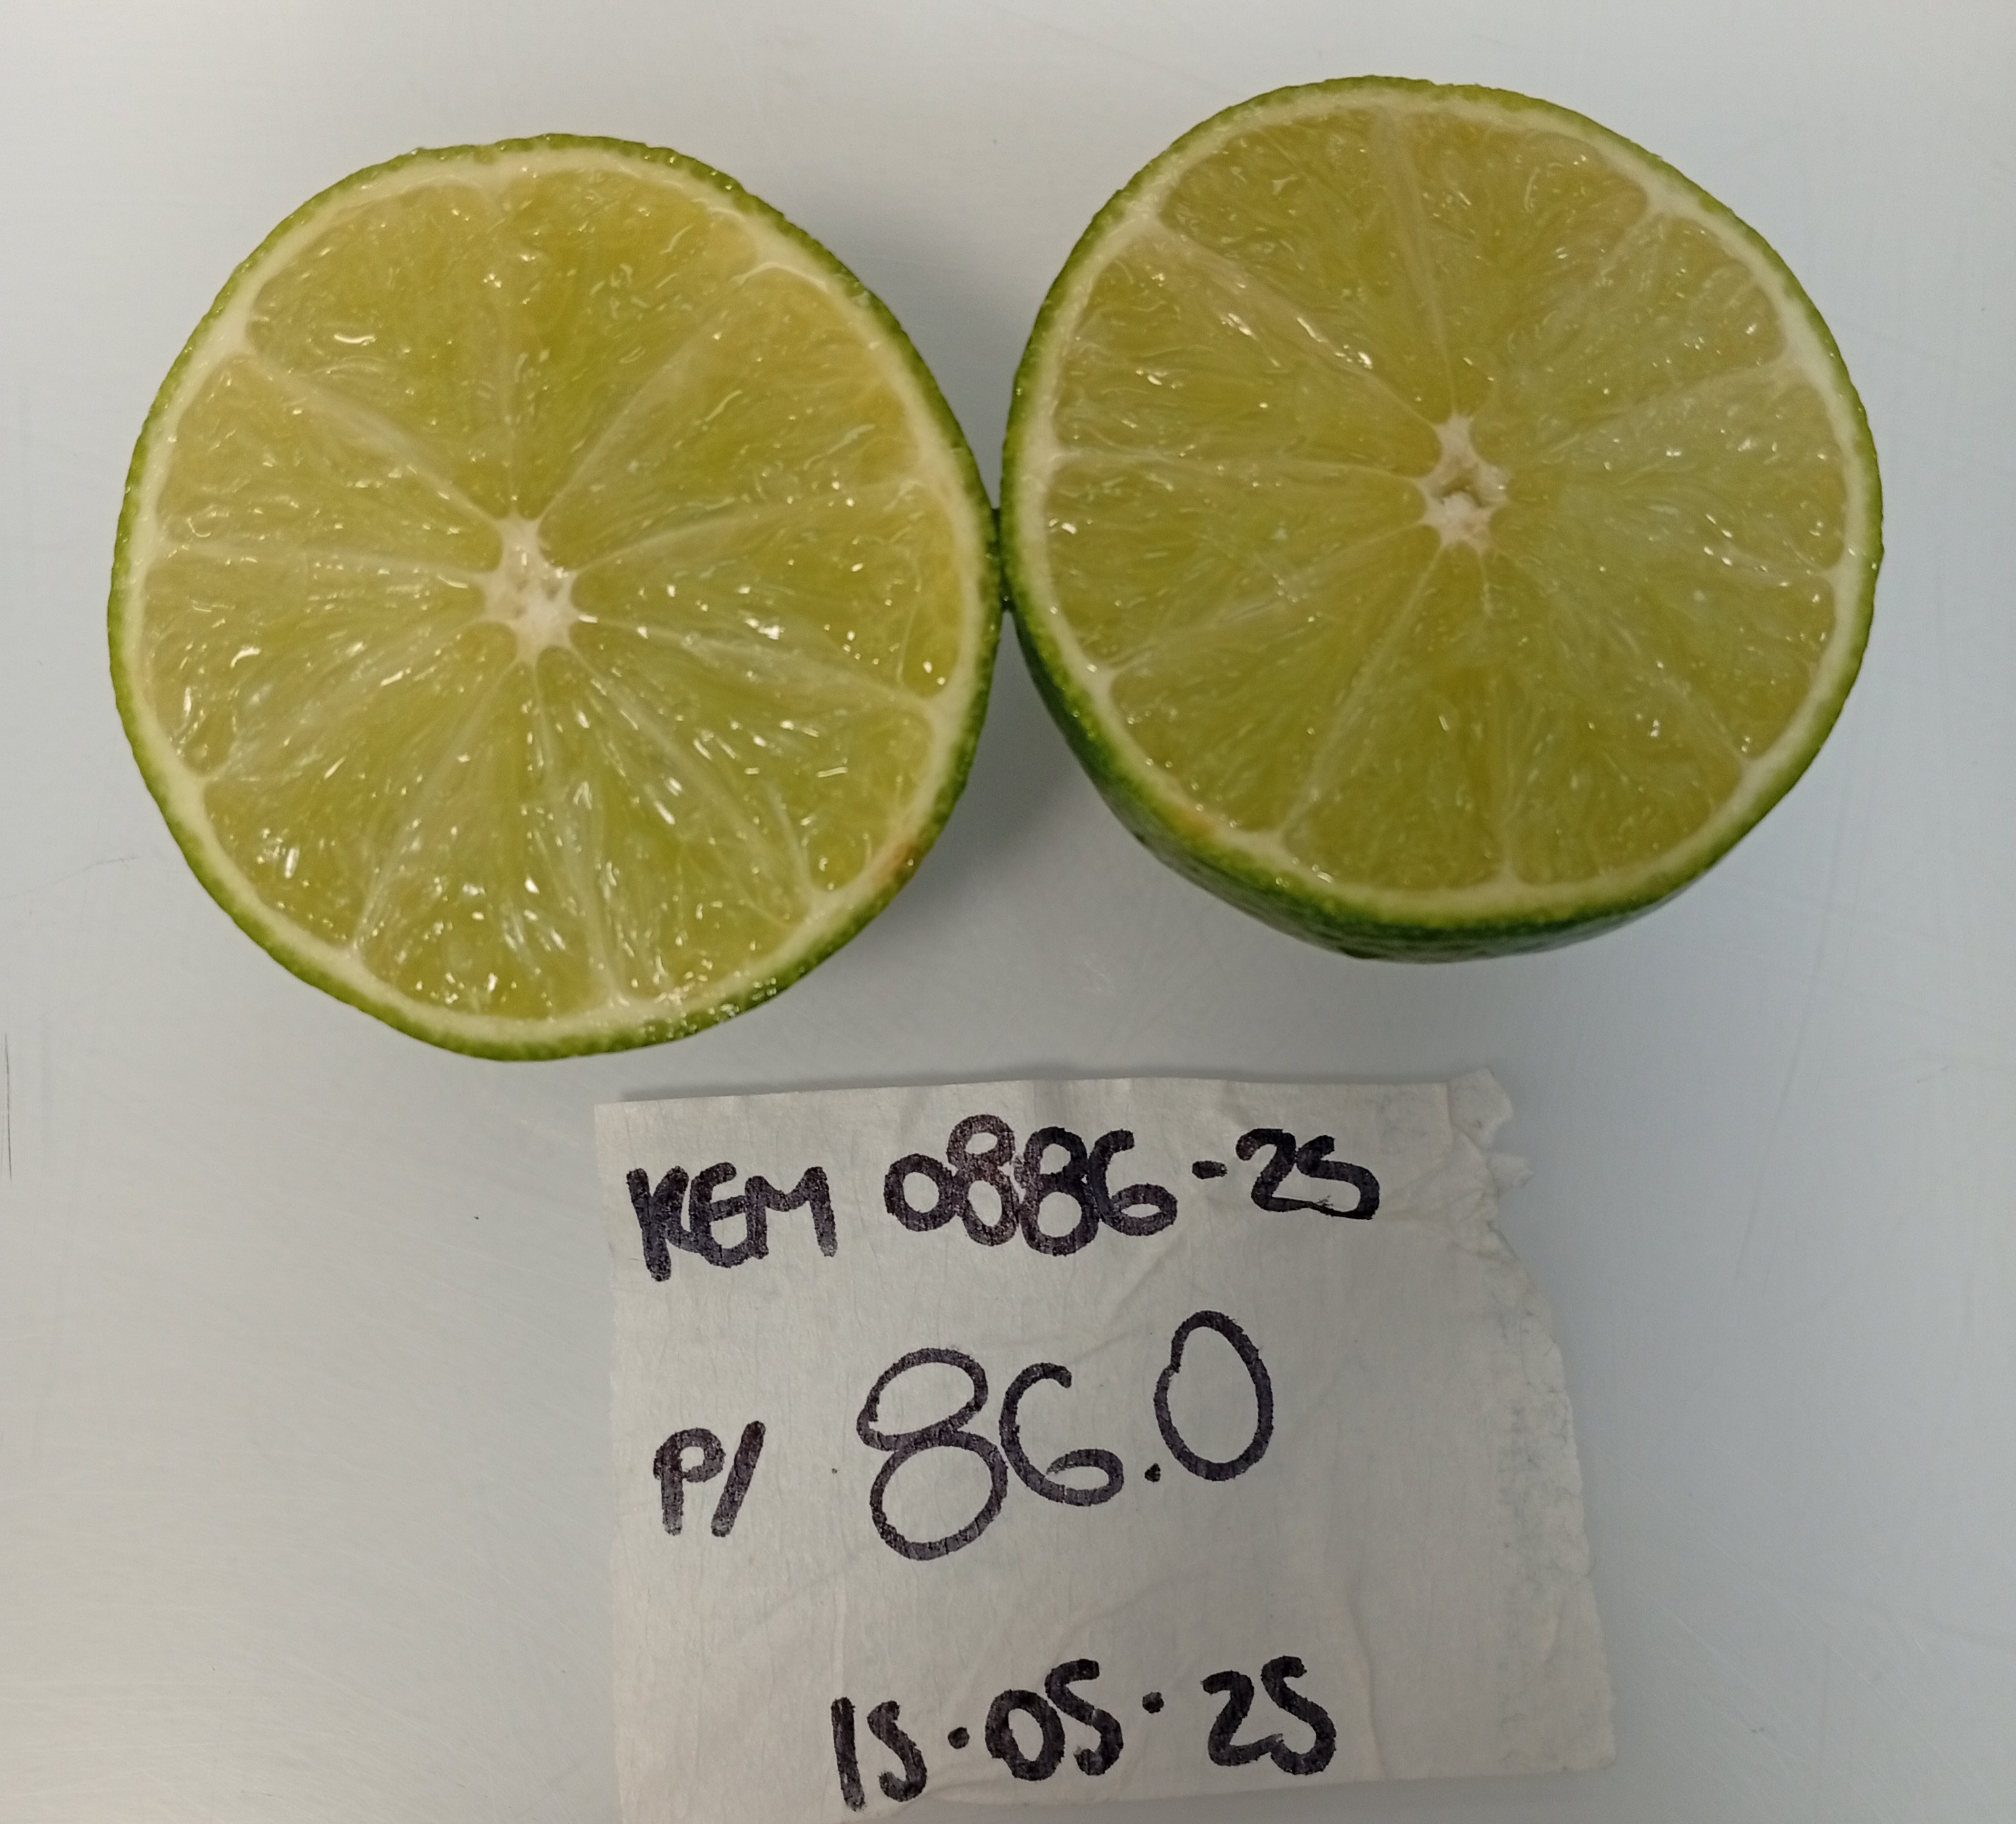 KEM 0886-25
P/ 86.0
15.05.25